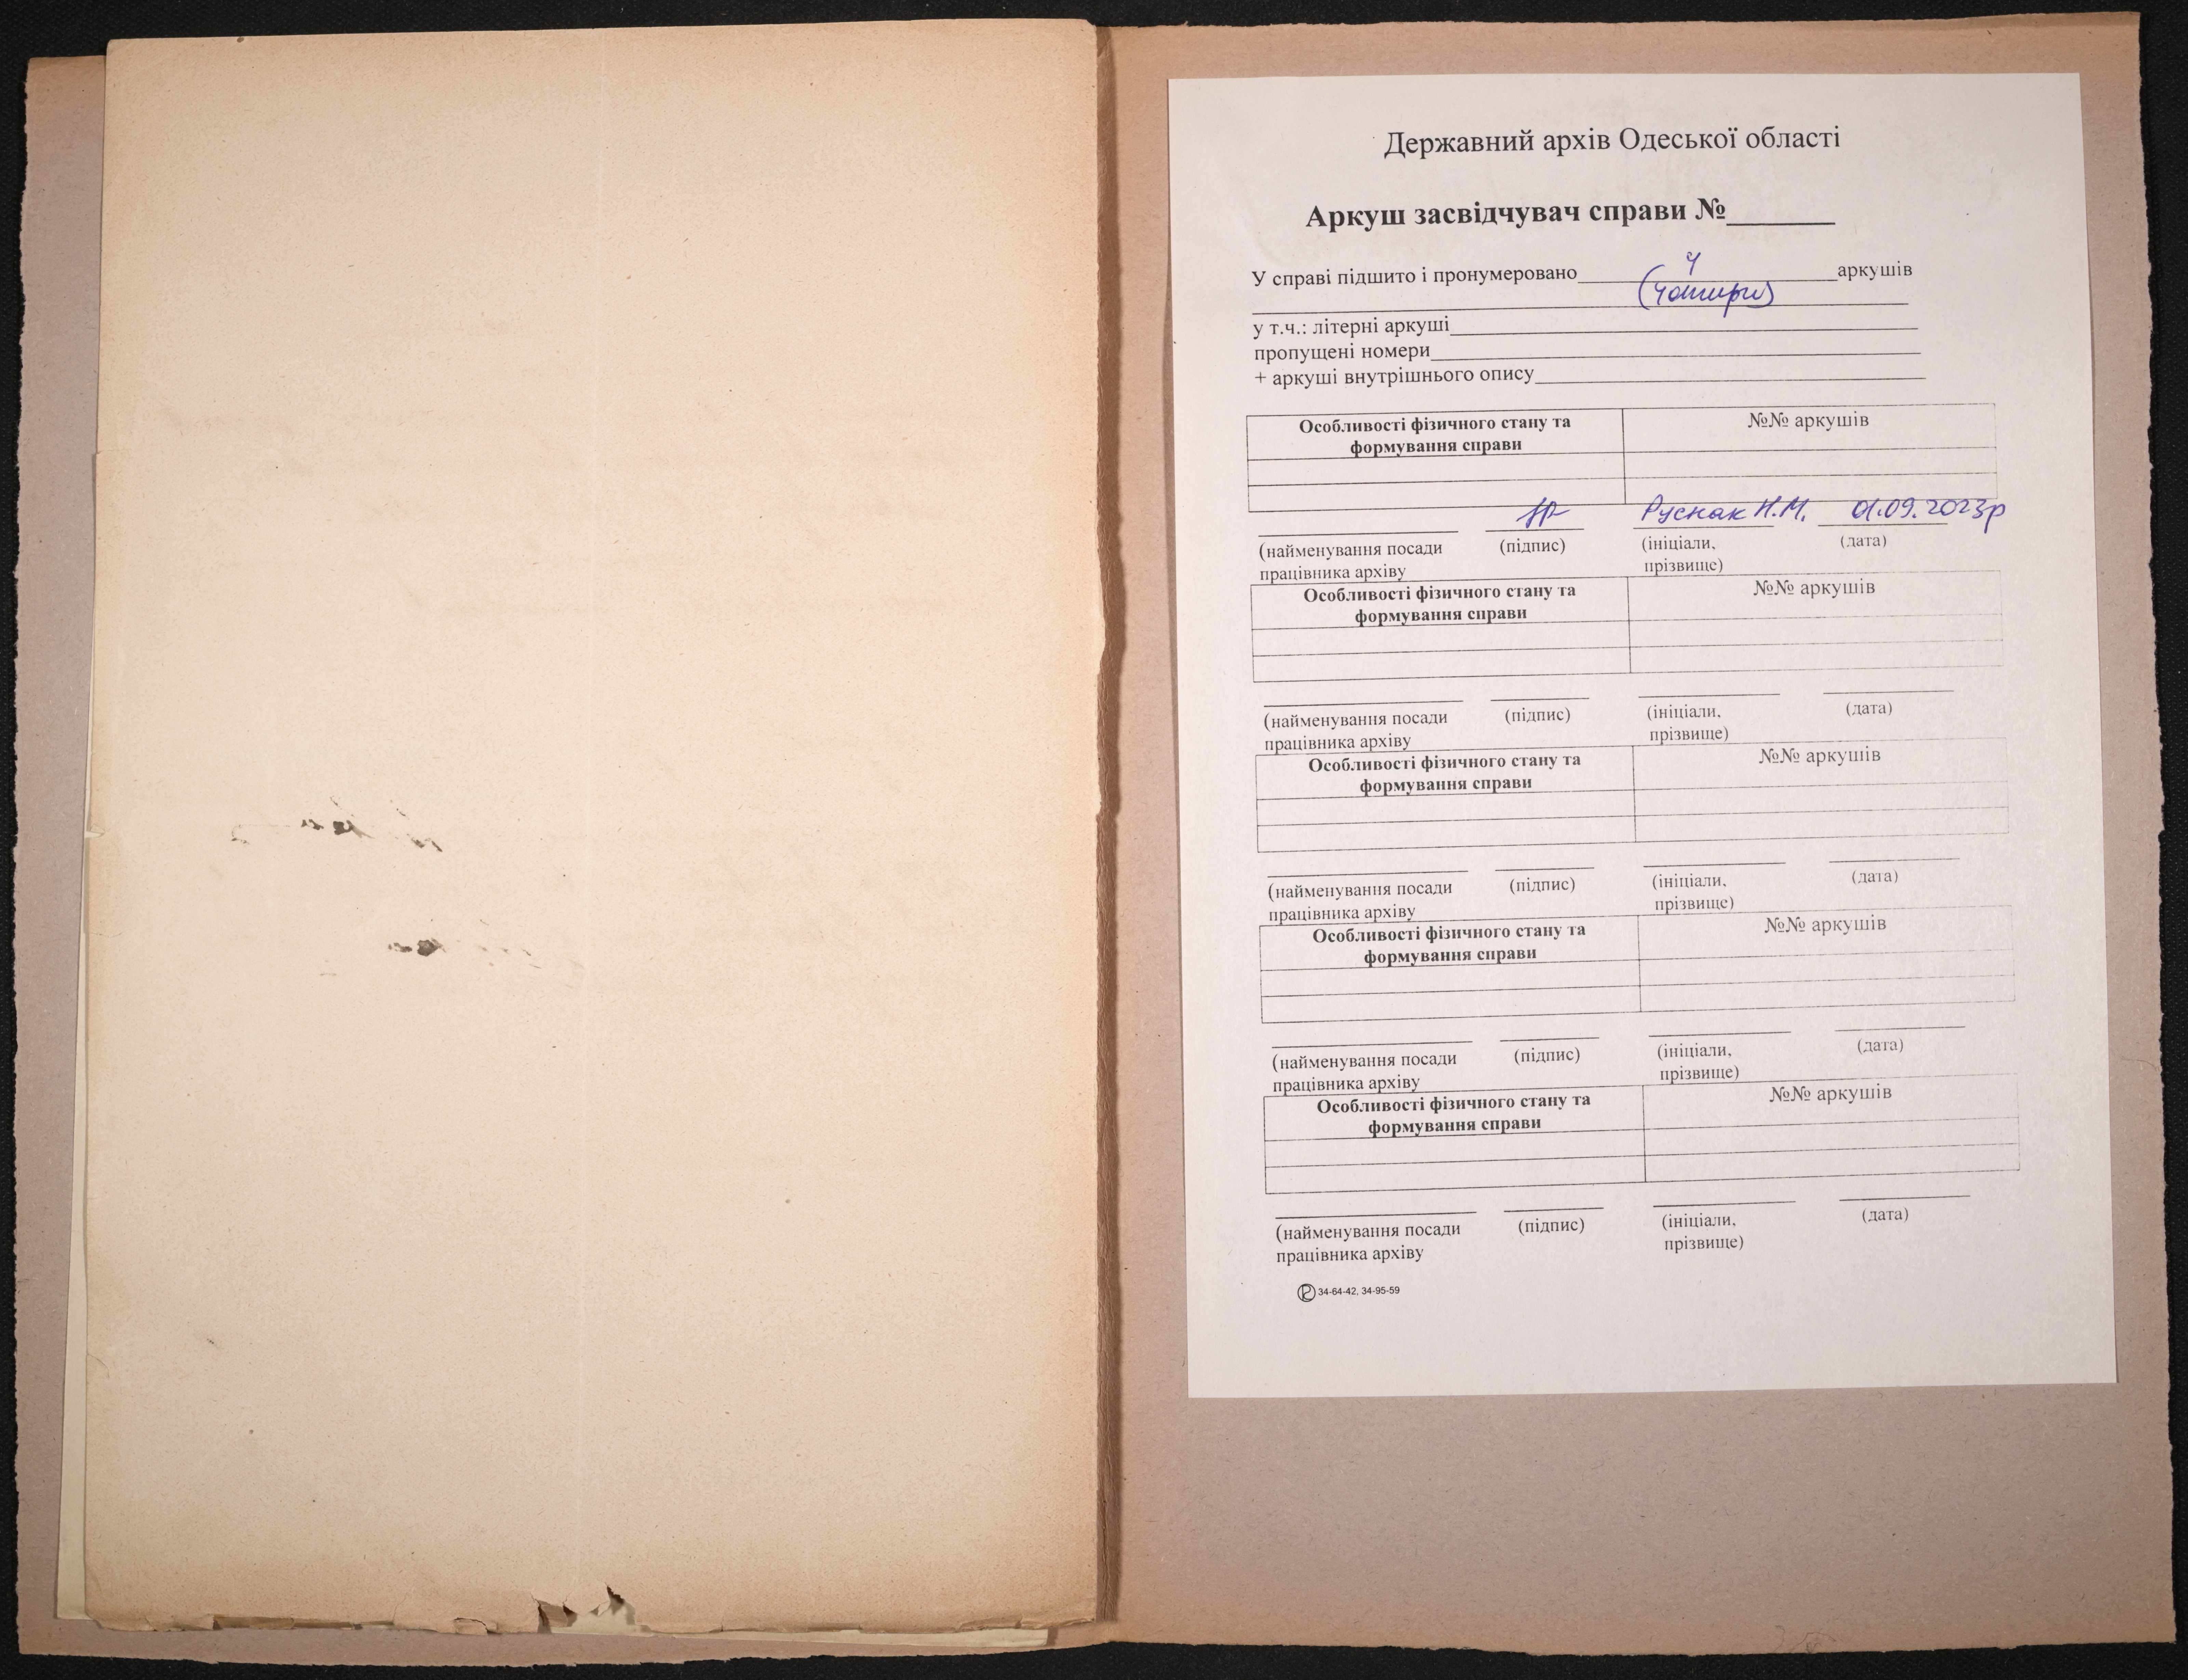 Державний архів Одеської області
Аркуш засвідчувач справи №______
У справі підшито і пронумеровано 4 аркушів
(чотири)
у т.ч.: літерні аркуші
пропущені номери
+ аркуші внутрішнього опису
Особливості фізичного стану та №№ аркушів
формування справи
Руснак Н.М. 01.09.2023р
(найменування посади (підпис) (ініціали, (дата)
працівника архіву прізвище)
Особливості фізичного стану та №№ аркушів
формування справи
(найменування посади (підпис) (ініціали, (дата)
працівника архіву прізвище)
Особливості фізичного стану та №№ аркушів
формування справи
(найменування посади (підпис) (ініціали, (дата)
працівника архіву прізвище)
Особливості фізичного стану та №№ аркушів
формування справи
(найменування посади (підпис) (ініціали, (дата)
працівника архіву прізвище)
Особливості фізичного стану та №№ аркушів
формування справи
(найменування посади (підпис) (ініціали, (дата)
працівника архіву прізвище)
34-64-42, 34-95-59